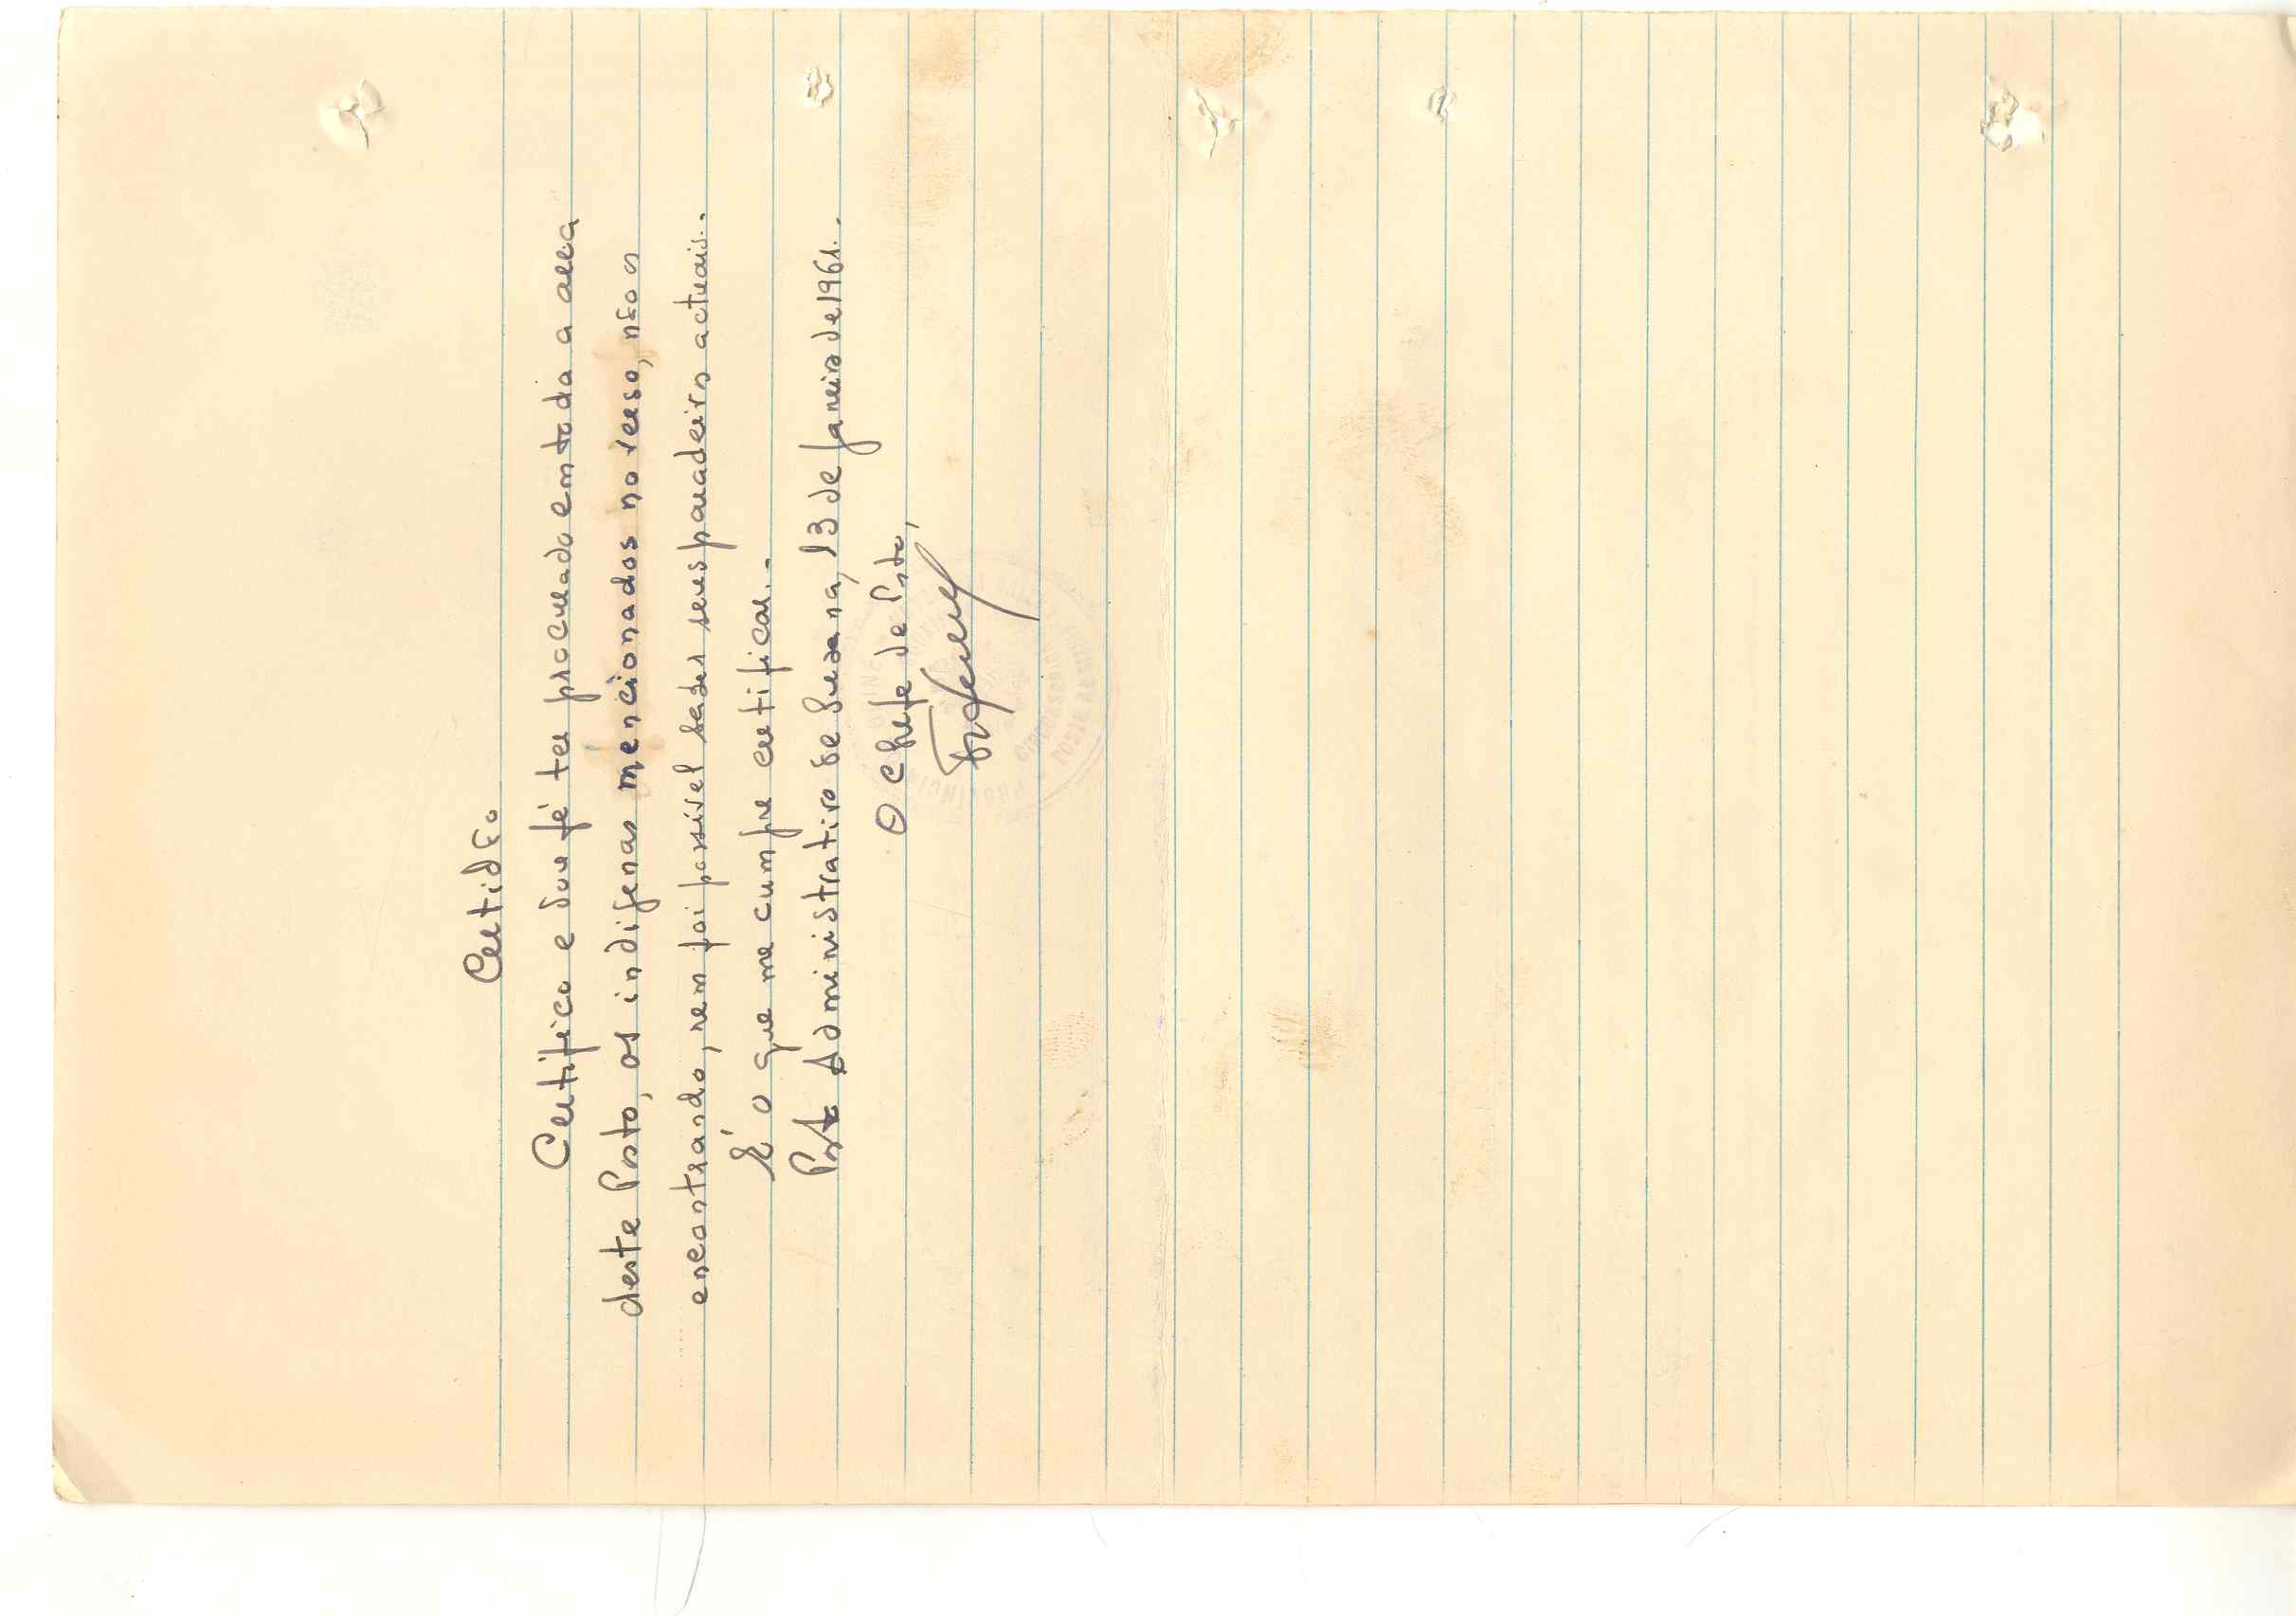 Certidão
Certifico e dou fé ter procurado em toda a area
deste Posto, os indigenas mencionados no verso, não os
encontrando, nem foi possivel saber seus paradeiros actuais..
É o que me cumpre certificar..-
Posto Administrativo de 13 de Janeiro de 1961..
O Chefe de Posto,